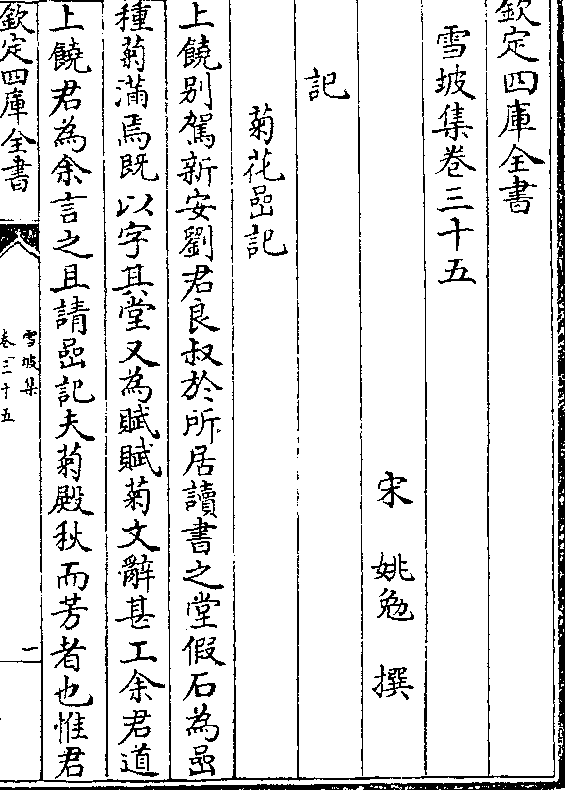 欽定四庫全書
雪坡集卷三十五
宋　姚勉　撰
記
菊花嵒記
上饒别駕新安劉君良叔於所居讀書之堂假石為嵒
種菊滿焉既以字其堂又為賦賦菊文辭甚工余君道
上饒君為余言之且請嵒記夫菊殿秋而芳者也惟君
欽定四庫全書
雪坡集
卷三十五
一